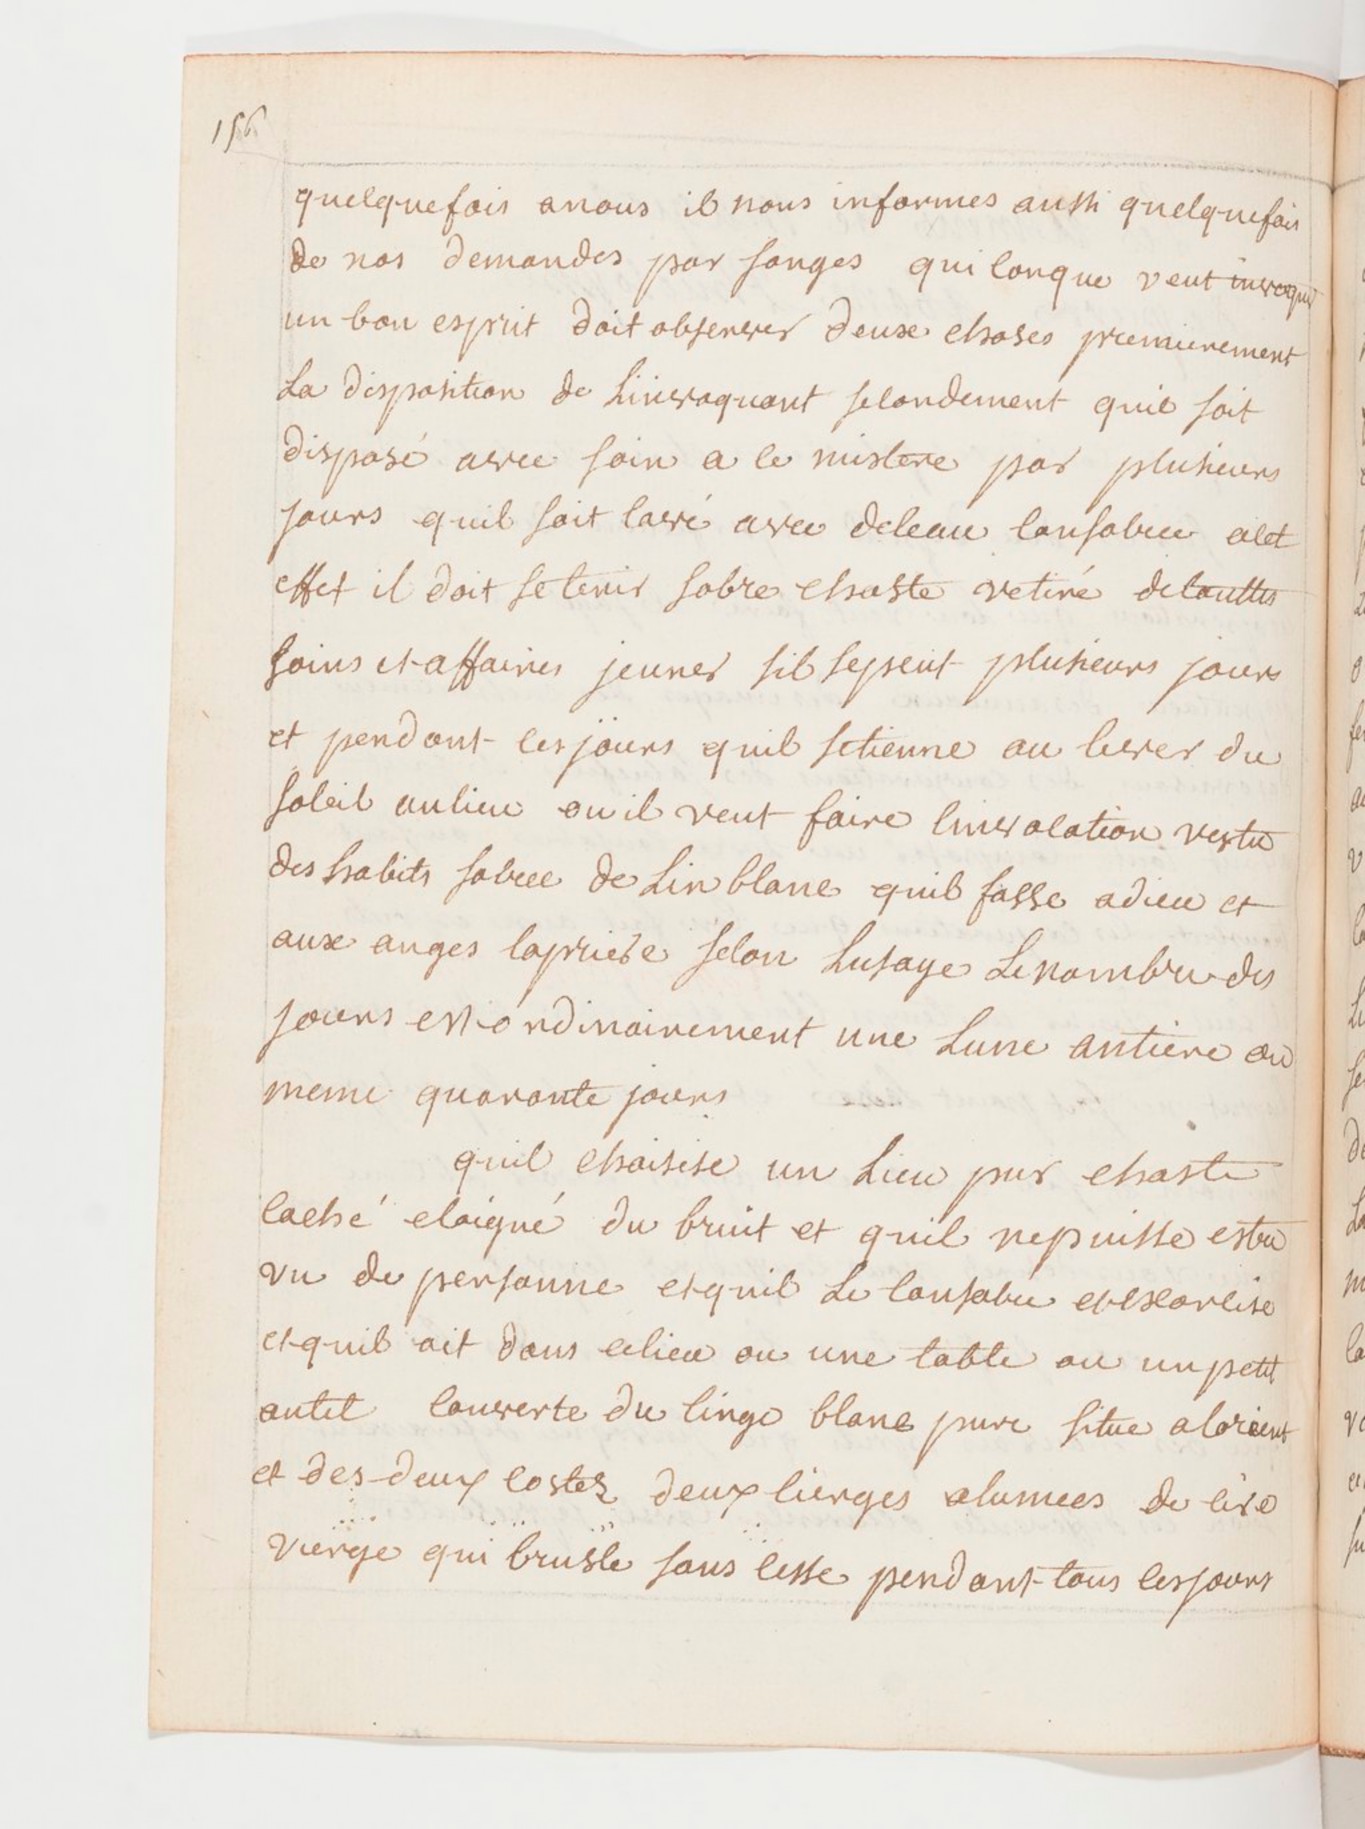 156
quelquefois anous il nous informes aussi quelquefois
de nos demandes par songes quiconque veut invoquer
un bon esprit doit observer deux choses premierement
La disposition de Linvoquant secondement quil soit
disposé avec soin a ce mistere par plusieurs
jours quil soit lavé avec deleau consacrée acet
effet il doit setenir sobre chaste retiré detouttes
soins et affaires jeuner sil sepeut plusieurs jours
et pendant ces jours quil setienne au lever du
soleil aulieu ou il veut faire linvocation vestu
des habits sacrée de Lin blanc quil fasse adieu et
aux anges lapriere selon Lusage Le nombre des
jours est ordinairement une Lune antiere ou
meme quarante jours
quil choisise un Lieu pur chaste
caché eloigné du bruit et quil nepuisse estre
vu de personne et quil Le consacre et Lexorcise
et quil ait dans celieu ou une table ou un petit
autel couverte du linge blanc pure situe alorient
et des deux costez deux cierges alumees de cire
vierge qui brusle sans cesse pendant tous les jours